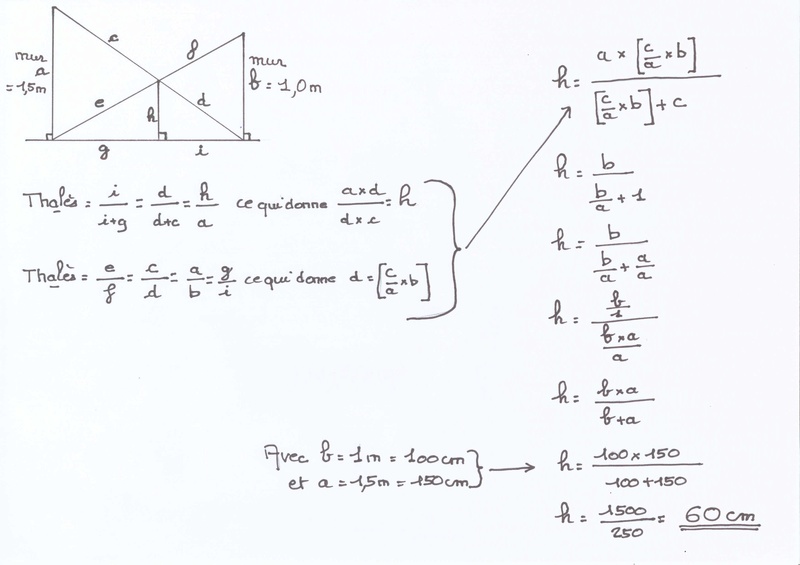 c
f
mur
a
= 1,5m
mur
b = 1,0m
e
h
d
g
i
Thalès = i/i+g = d/d+c = h/a ce qui donne a×d/d×c = h
Thalès = e/f = c/d = a/b = g/i ce qui donne d = [c/a × b]
h = a × [c/a × b] / [c/a × b] + c
h = b / b/a + 1
h = b / b/a + a/a
h = b/1 / b×a/a
h = b×a / b+a
Avec b = 1m = 100cm
et a = 1,5m = 150cm
h = 100 × 150 / 100 + 150
h = 1500/250 = 60 cm